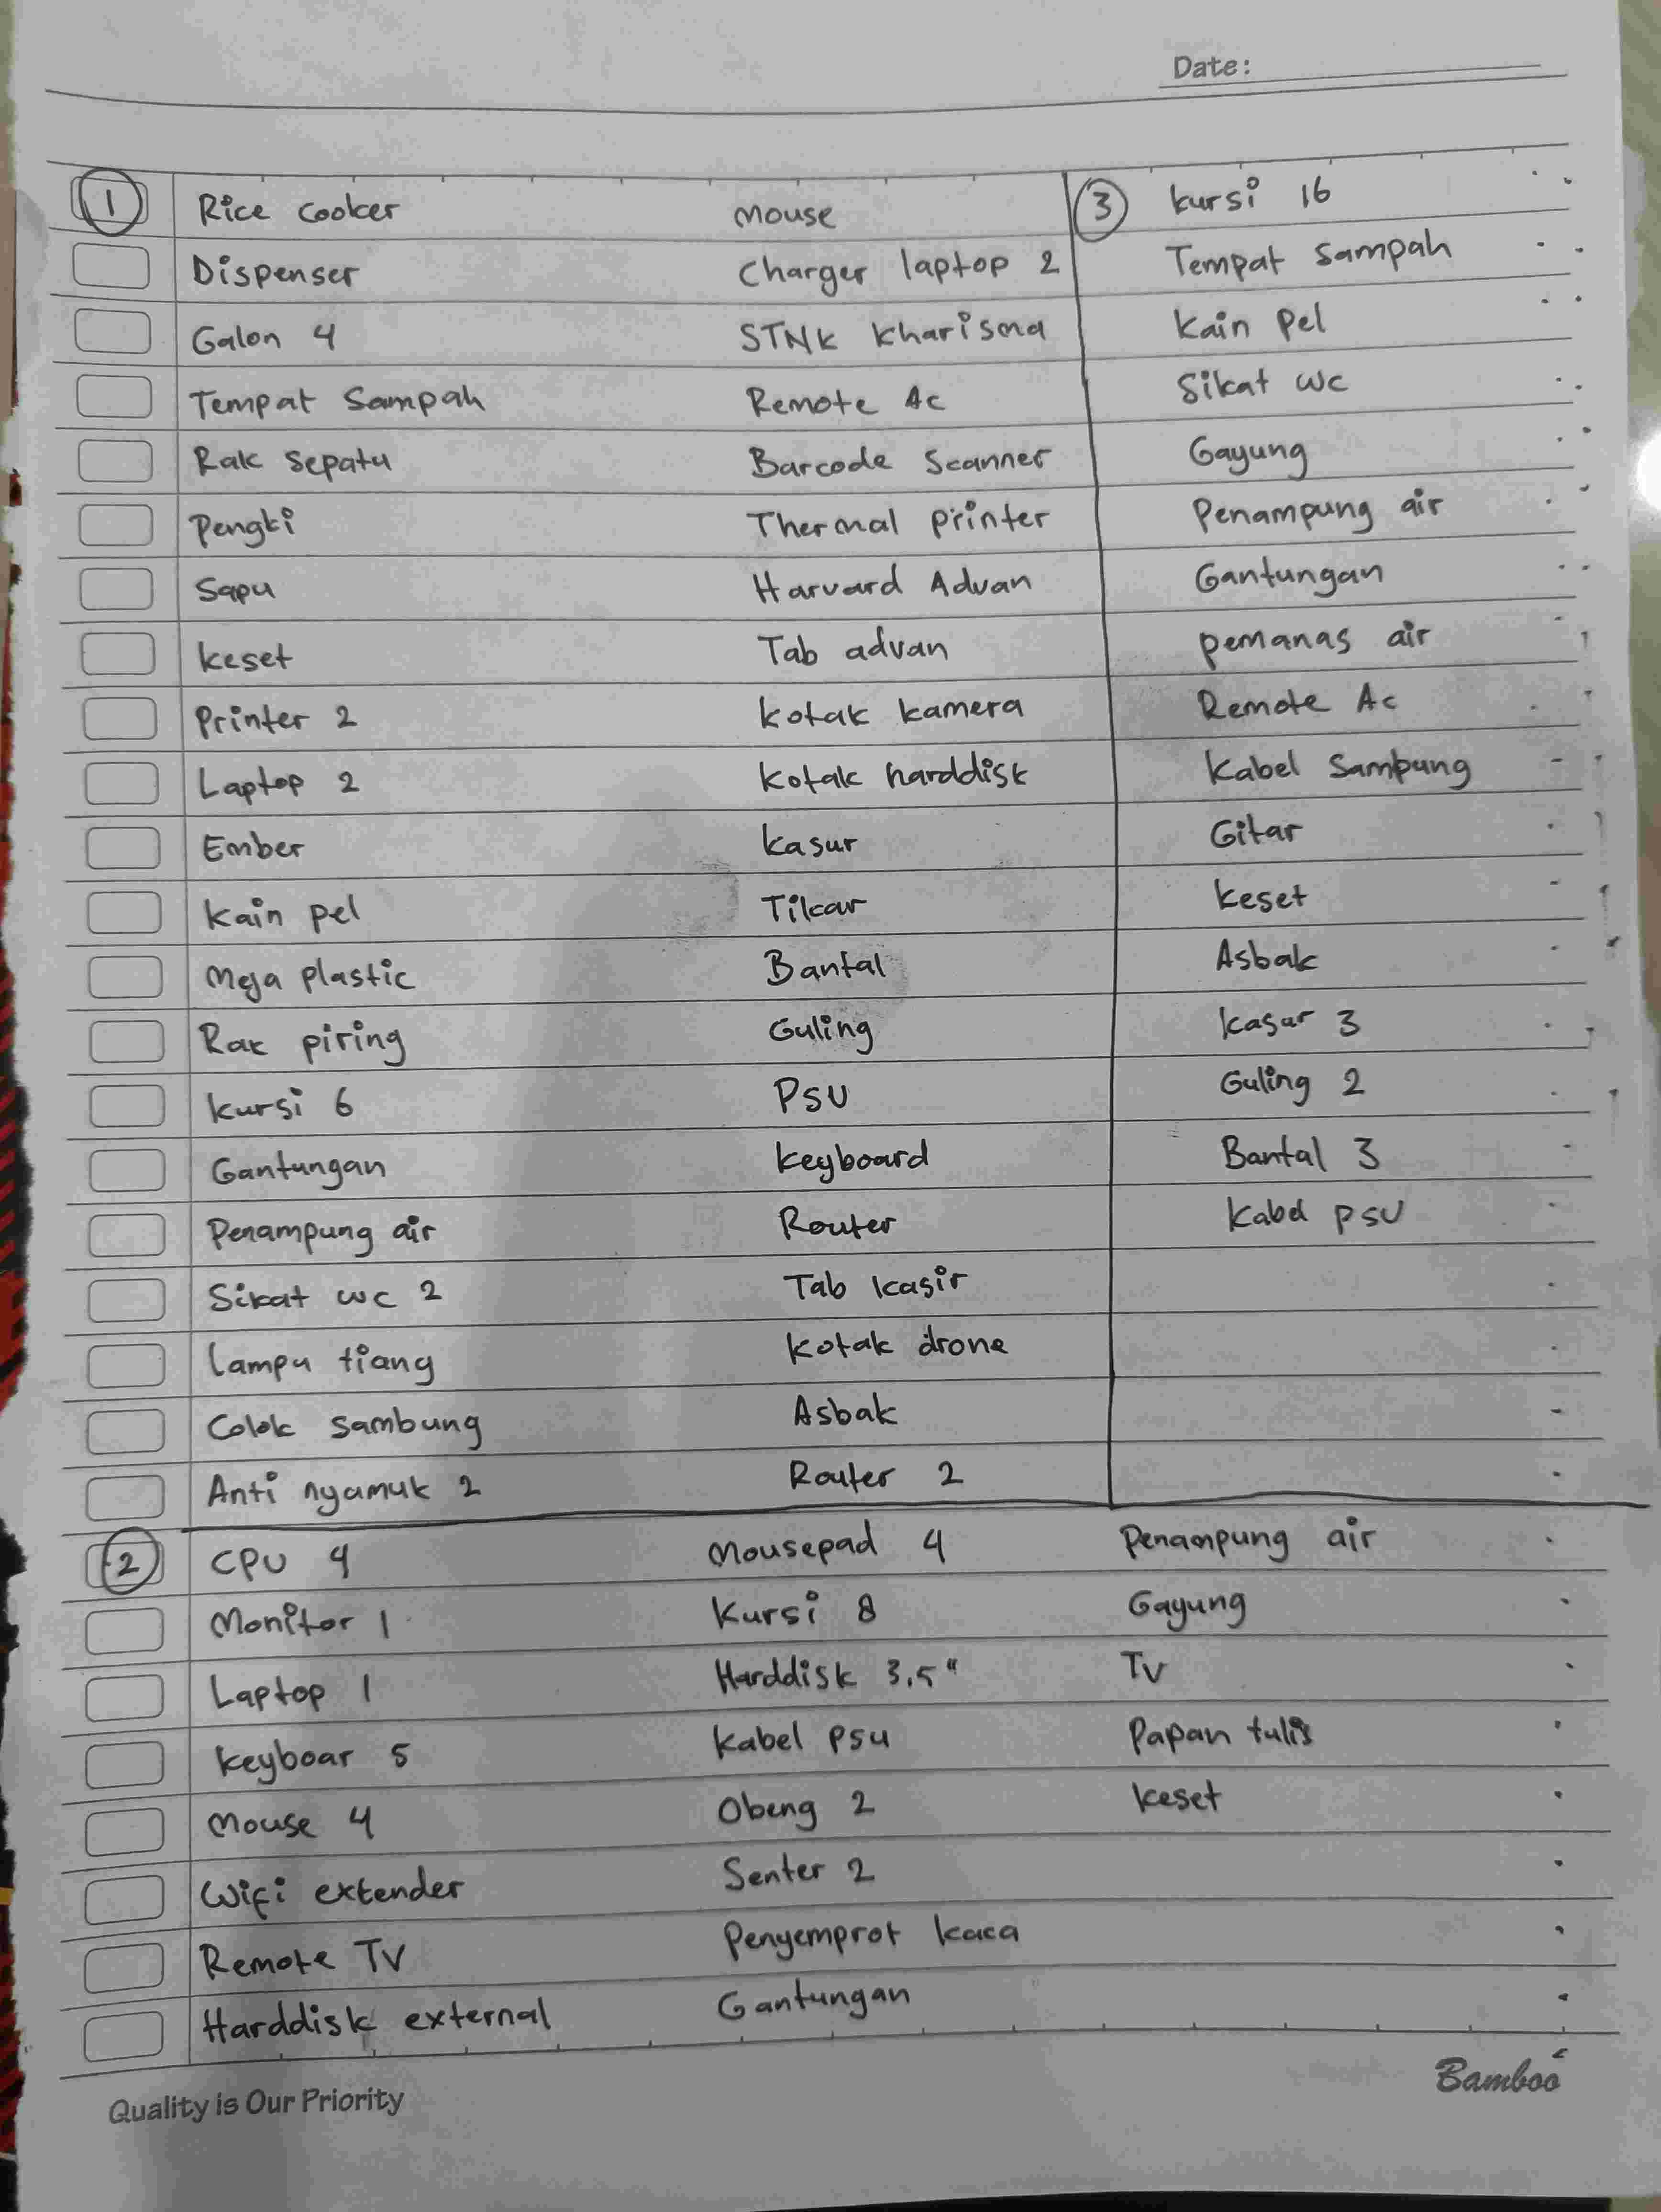 Date:
1
Rice Cooker
Dispenser
Galon 4
Tempat Sampah
Rak Sepatu
Pengki
Sapu
keset
Printer 2
Laptop 2
Ember
Kain pel
Meja plastic
Rak piring
kursi 6
Gantungan
Penampung air
Sikat wc 2
Lampu tiang
Colok sambung
Anti nyamuk 2
mouse
Charger laptop 2
STNK Kharisma
Remote Ac
Barcode Scanner
Thermal printer
Harvard Advan
Tab advan
kotak kamera
kotak harddisk
kasur
Tikar
Bantal
Guling
PSU
keyboard
Router
Tab kasir
kotak drone
Asbak
Router 2
3
kursi 16
Tempat Sampah
Kain Pel
Sikat wc
Gayung
Penampung air
Gantungan
pemanas air
Remote Ac
Kabel Sambung
Gitar
keset
Asbak
kasur 3
Guling 2
Bantal 3
Kabel PSU
2
CPU 4
Monitor 1
Laptop 1
keyboar 5
Mouse 4
Wifi extender
Remote TV
Harddisk external
Mousepad 4
Kursi 8
Harddisk 3.5"
Kabel PSU
Obeng 2
Senter 2
Penyemprot kaca
Gantungan
Penampung air
Gayung
TV
Papan tulis
keset
Quality is Our Priority
Bamboo